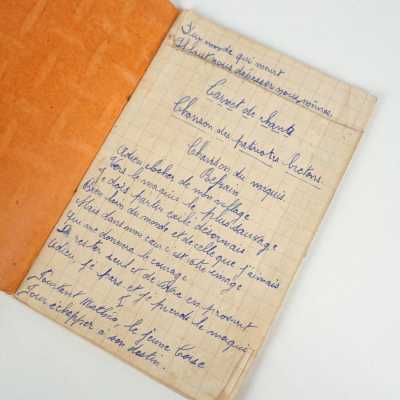 Sur monde qui meurt
Il faut nous dépasser nous mêmes
Carnet de chants
Chanson des patriotes bretons.
Chanson du maquis.
Refrain
Adieu clocher de mon village
Vers le maquis le plus sauvage
Je dois partir exilé désormais
Bien loin du monde et de celle que j'aimais
Mais dans mon cœur c'est votre image
Qui me donnera le courage
De rester seul et de vivre en proscrit
Adieu, je pars et je prends le maquis
I
Pourtant Mathéo, le jeune Corse
Pour échapper à son destin.